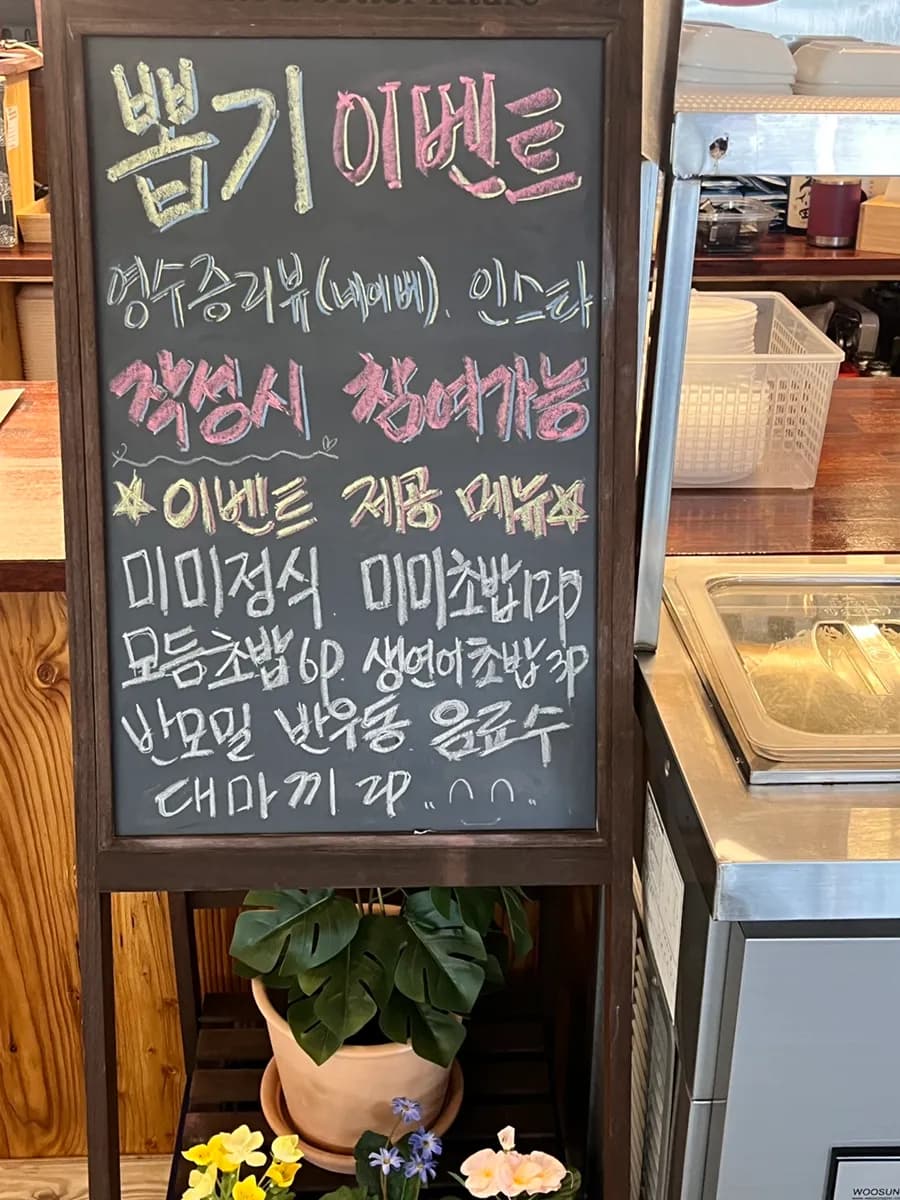 뽑기 이벤트
영수증리뷰(네이버). 인스타
작성시 참여가능
☆이벤트 제공 메뉴☆
미미정식. 미미초밥12p
모듬초밥6p. 생연어초밥3p
반모밀 반우동. 음료수
대마끼 2p..
WOOSUN